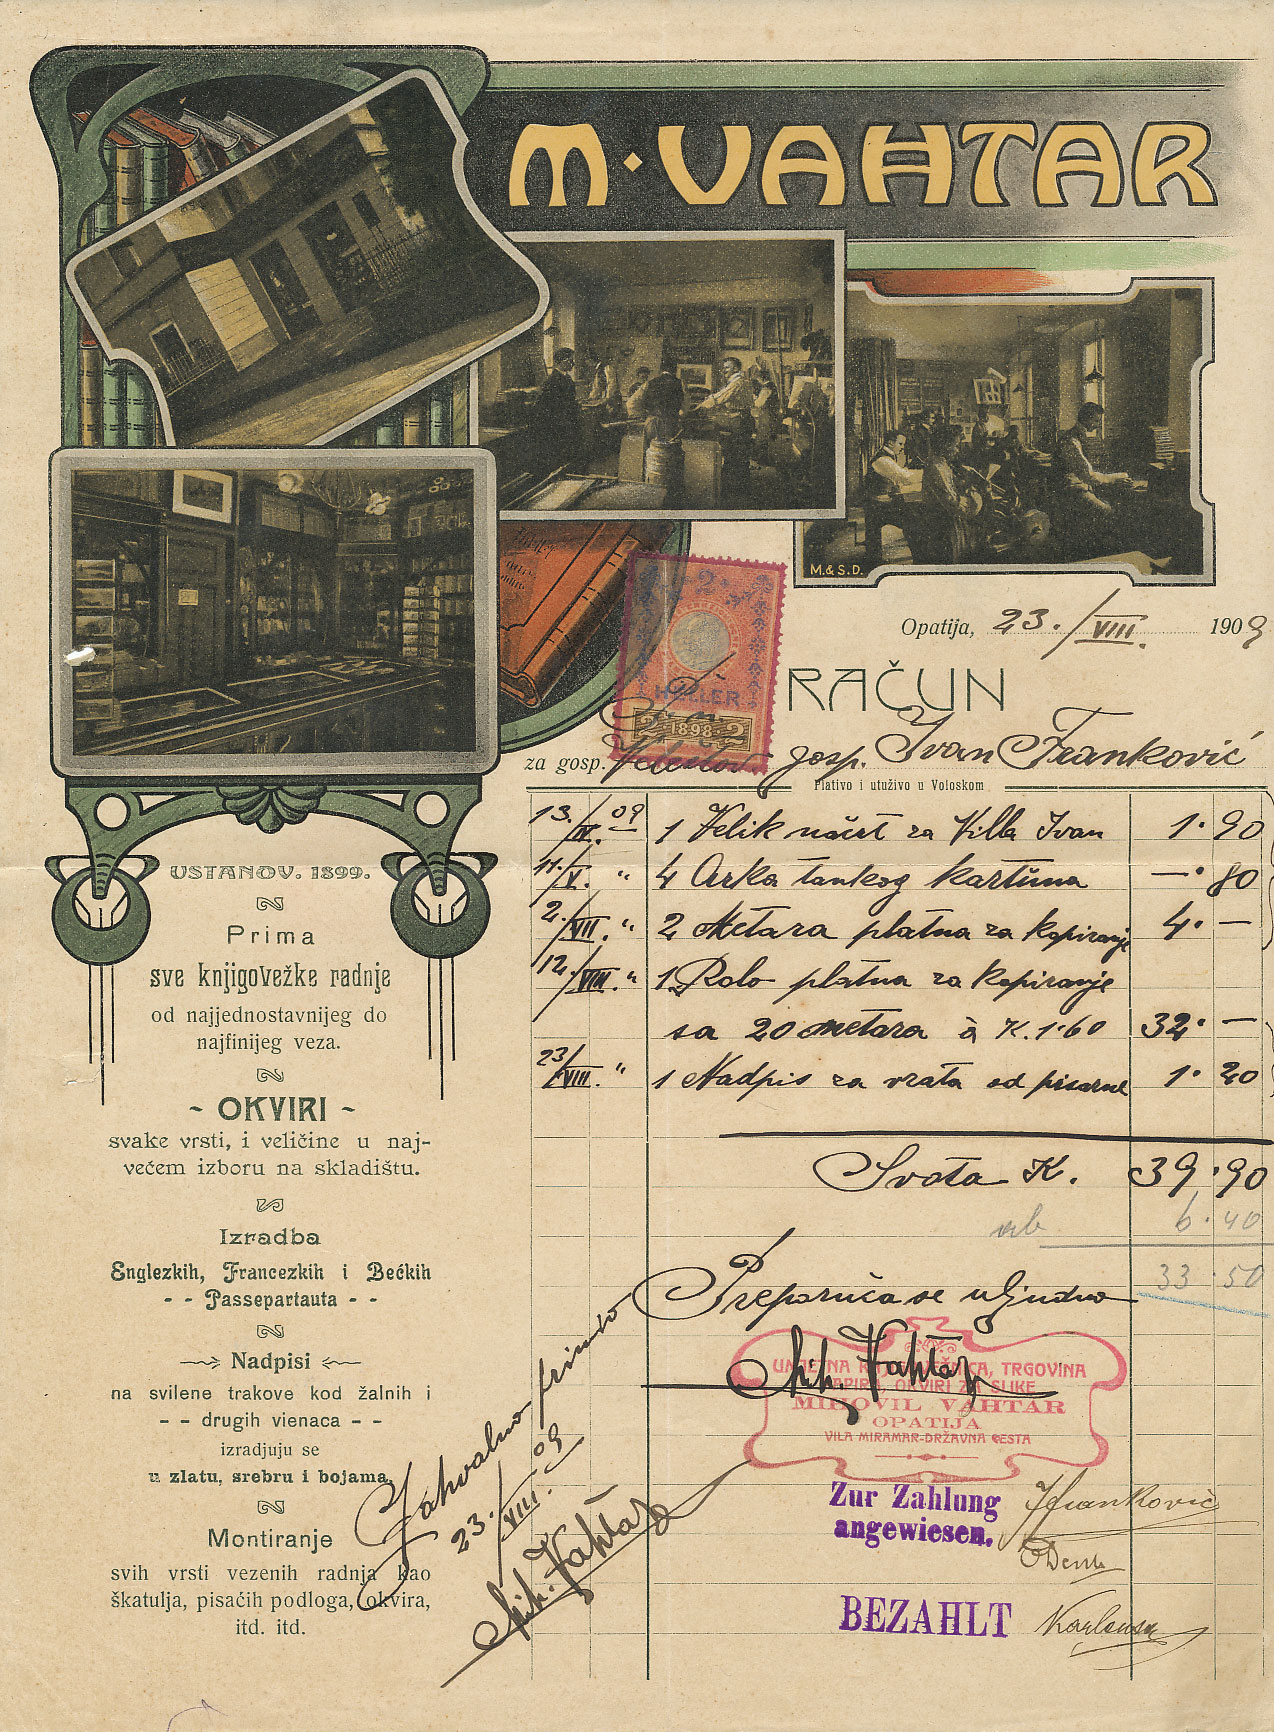 M · VAHTAR
M. & S. D.
Opatija, 23./VIII. 1909
RAČUN
2
HELLER
2 1898 2
za gosp. gosp. Ivan Franković
Plativo i utuživo u Voloskom
13./IV. 09 1 Velik načrt za Villa Ivan 1·90
11./V. " 4 Arka tankog kartona —·80
2./VII. " 2 Metara platna za kopiranje 4·—
12./VIII. " 1 Rolo platna za kopiranje
sa 20 metara à K. 1·60 32·—
23/VIII. " 1 Nadpis za vrata od pisarne 1·20
Svota K. 39·90
6·40
33·50
Preporuča se uljudno
Mih. Vahtar
UMJETNA KNJIGOVEŽNICA, TRGOVINA
PAPIRA, OKVIRI ZA SLIKE
MIHOVIL VAHTAR
OPATIJA
VILA MIRAMAR-DRŽAVNA CESTA
Zahvalno primio
23./VIII. 09
Mih. Vahtar
Zur Zahlung
angewiesen.
IFranković
BEZAHLT
USTANOV. 1899.
Prima
sve knjigovežke radnje
od najjednostavnijeg do
najfinijeg veza.
~ OKVIRI ~
svake vrsti, i veličine u naj-
većem izboru na skladištu.
Izradba
Englezkih, Francezkih i Bećkih
- - Passepartauta - -
Nadpisi
na svilene trakove kod žalnih i
- - drugih vienaca - -
izradjuju se
u zlatu, srebru i bojama.
Montiranje
svih vrsti vezenih radnja kao
škatulja, pisaćih podloga, okvira,
itd. itd.